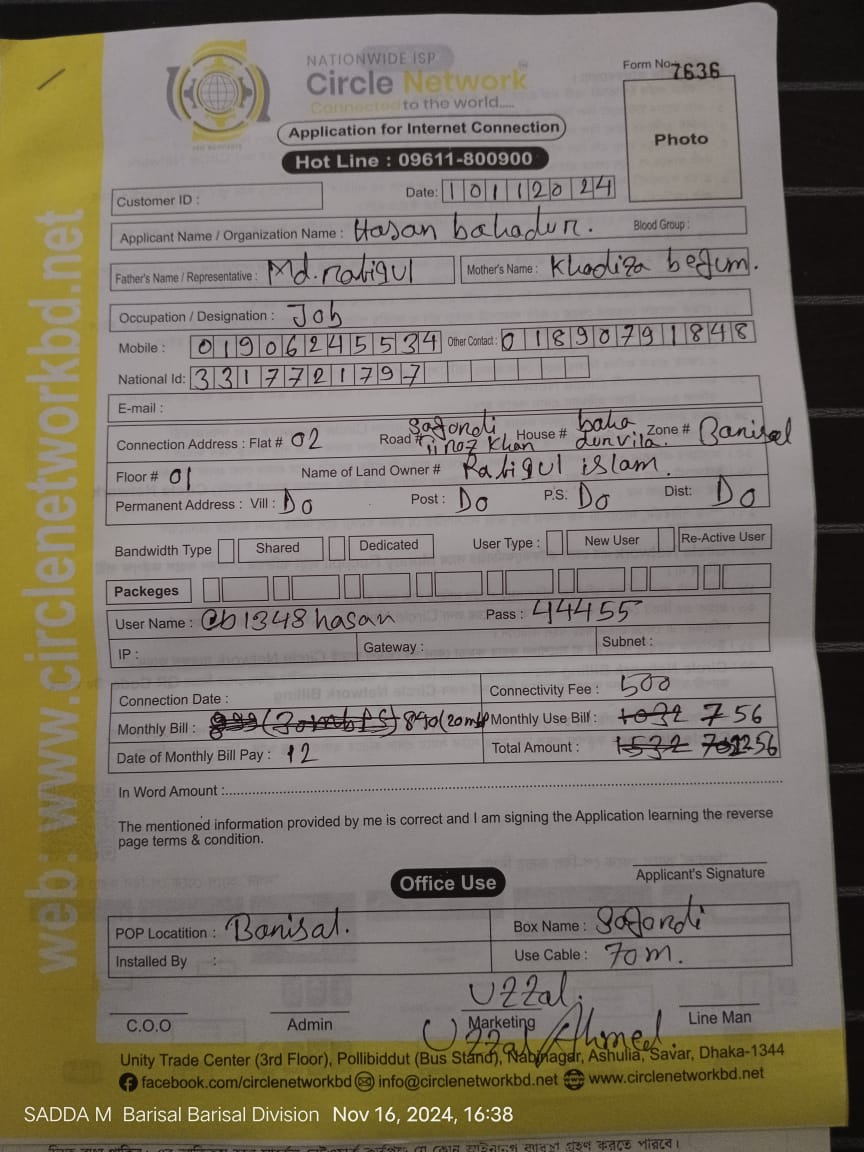 NATIONWIDE ISP
Circle Network
Connected to the world.....
Form No 7636
Application for Internet Connection
Photo
Hot Line : 09611-800900
Customer ID :
Date: 10112024
Applicant Name / Organization Name : Hasan bahadur. Blood Group :
Father's Name / Representative : Md. rabiqul Mother's Name : Khadiza begum.
Occupation / Designation : Job
Mobile : 01906245534 Other Contact : 01890791848
National Id: 3317721797
E-mail :
Connection Address : Flat # 02 Road # Sagondi firoz Khan House # baha dur vila. Zone # Barisal
Floor # 01 Name of Land Owner # Rabiqul islam.
Permanent Address : Vill : Do Post : Do P.S. Do Dist: Do
Bandwidth Type Shared Dedicated User Type : New User Re-Active User
Packeges
User Name : @b1348hasan Pass : 44455
IP : Gateway : Subnet :
Connection Date : Connectivity Fee : 500
Monthly Bill : (30mbps) 840(20mbp Monthly Use Bill : 1032 756
Date of Monthly Bill Pay : 12 Total Amount : 1532 1256
In Word Amount :
The mentioned information provided by me is correct and I am signing the Application learning the reverse
page terms & condition.
Office Use
Applicant's Signature
POP Locatition : Barisal. Box Name : Sagordi
Installed By : Use Cable : 70m.
Uzzal.
C.O.O Admin Marketing Line Man
Uzzal Ahmed.
Unity Trade Center (3rd Floor), Pollibiddut (Bus Stand), Nabinagar, Ashulia, Savar, Dhaka-1344
facebook.com/circlenetworkbd info@circlenetworkbd.net www.circlenetworkbd.net
web: www.circlenetworkbd.net
SADDA M Barisal Barisal Division Nov 16, 2024, 16:38